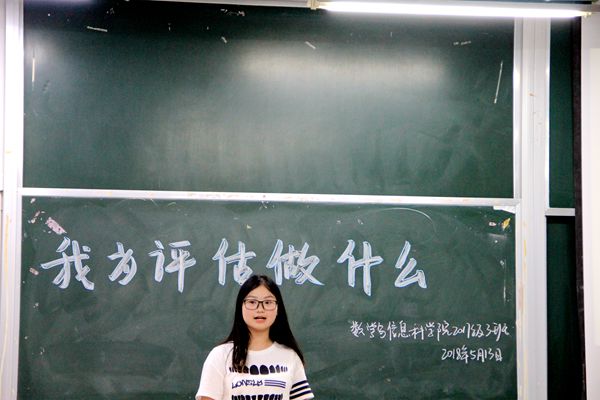 我为评估做什么
数学与信息科学学院2017级3班
2018年5月13日